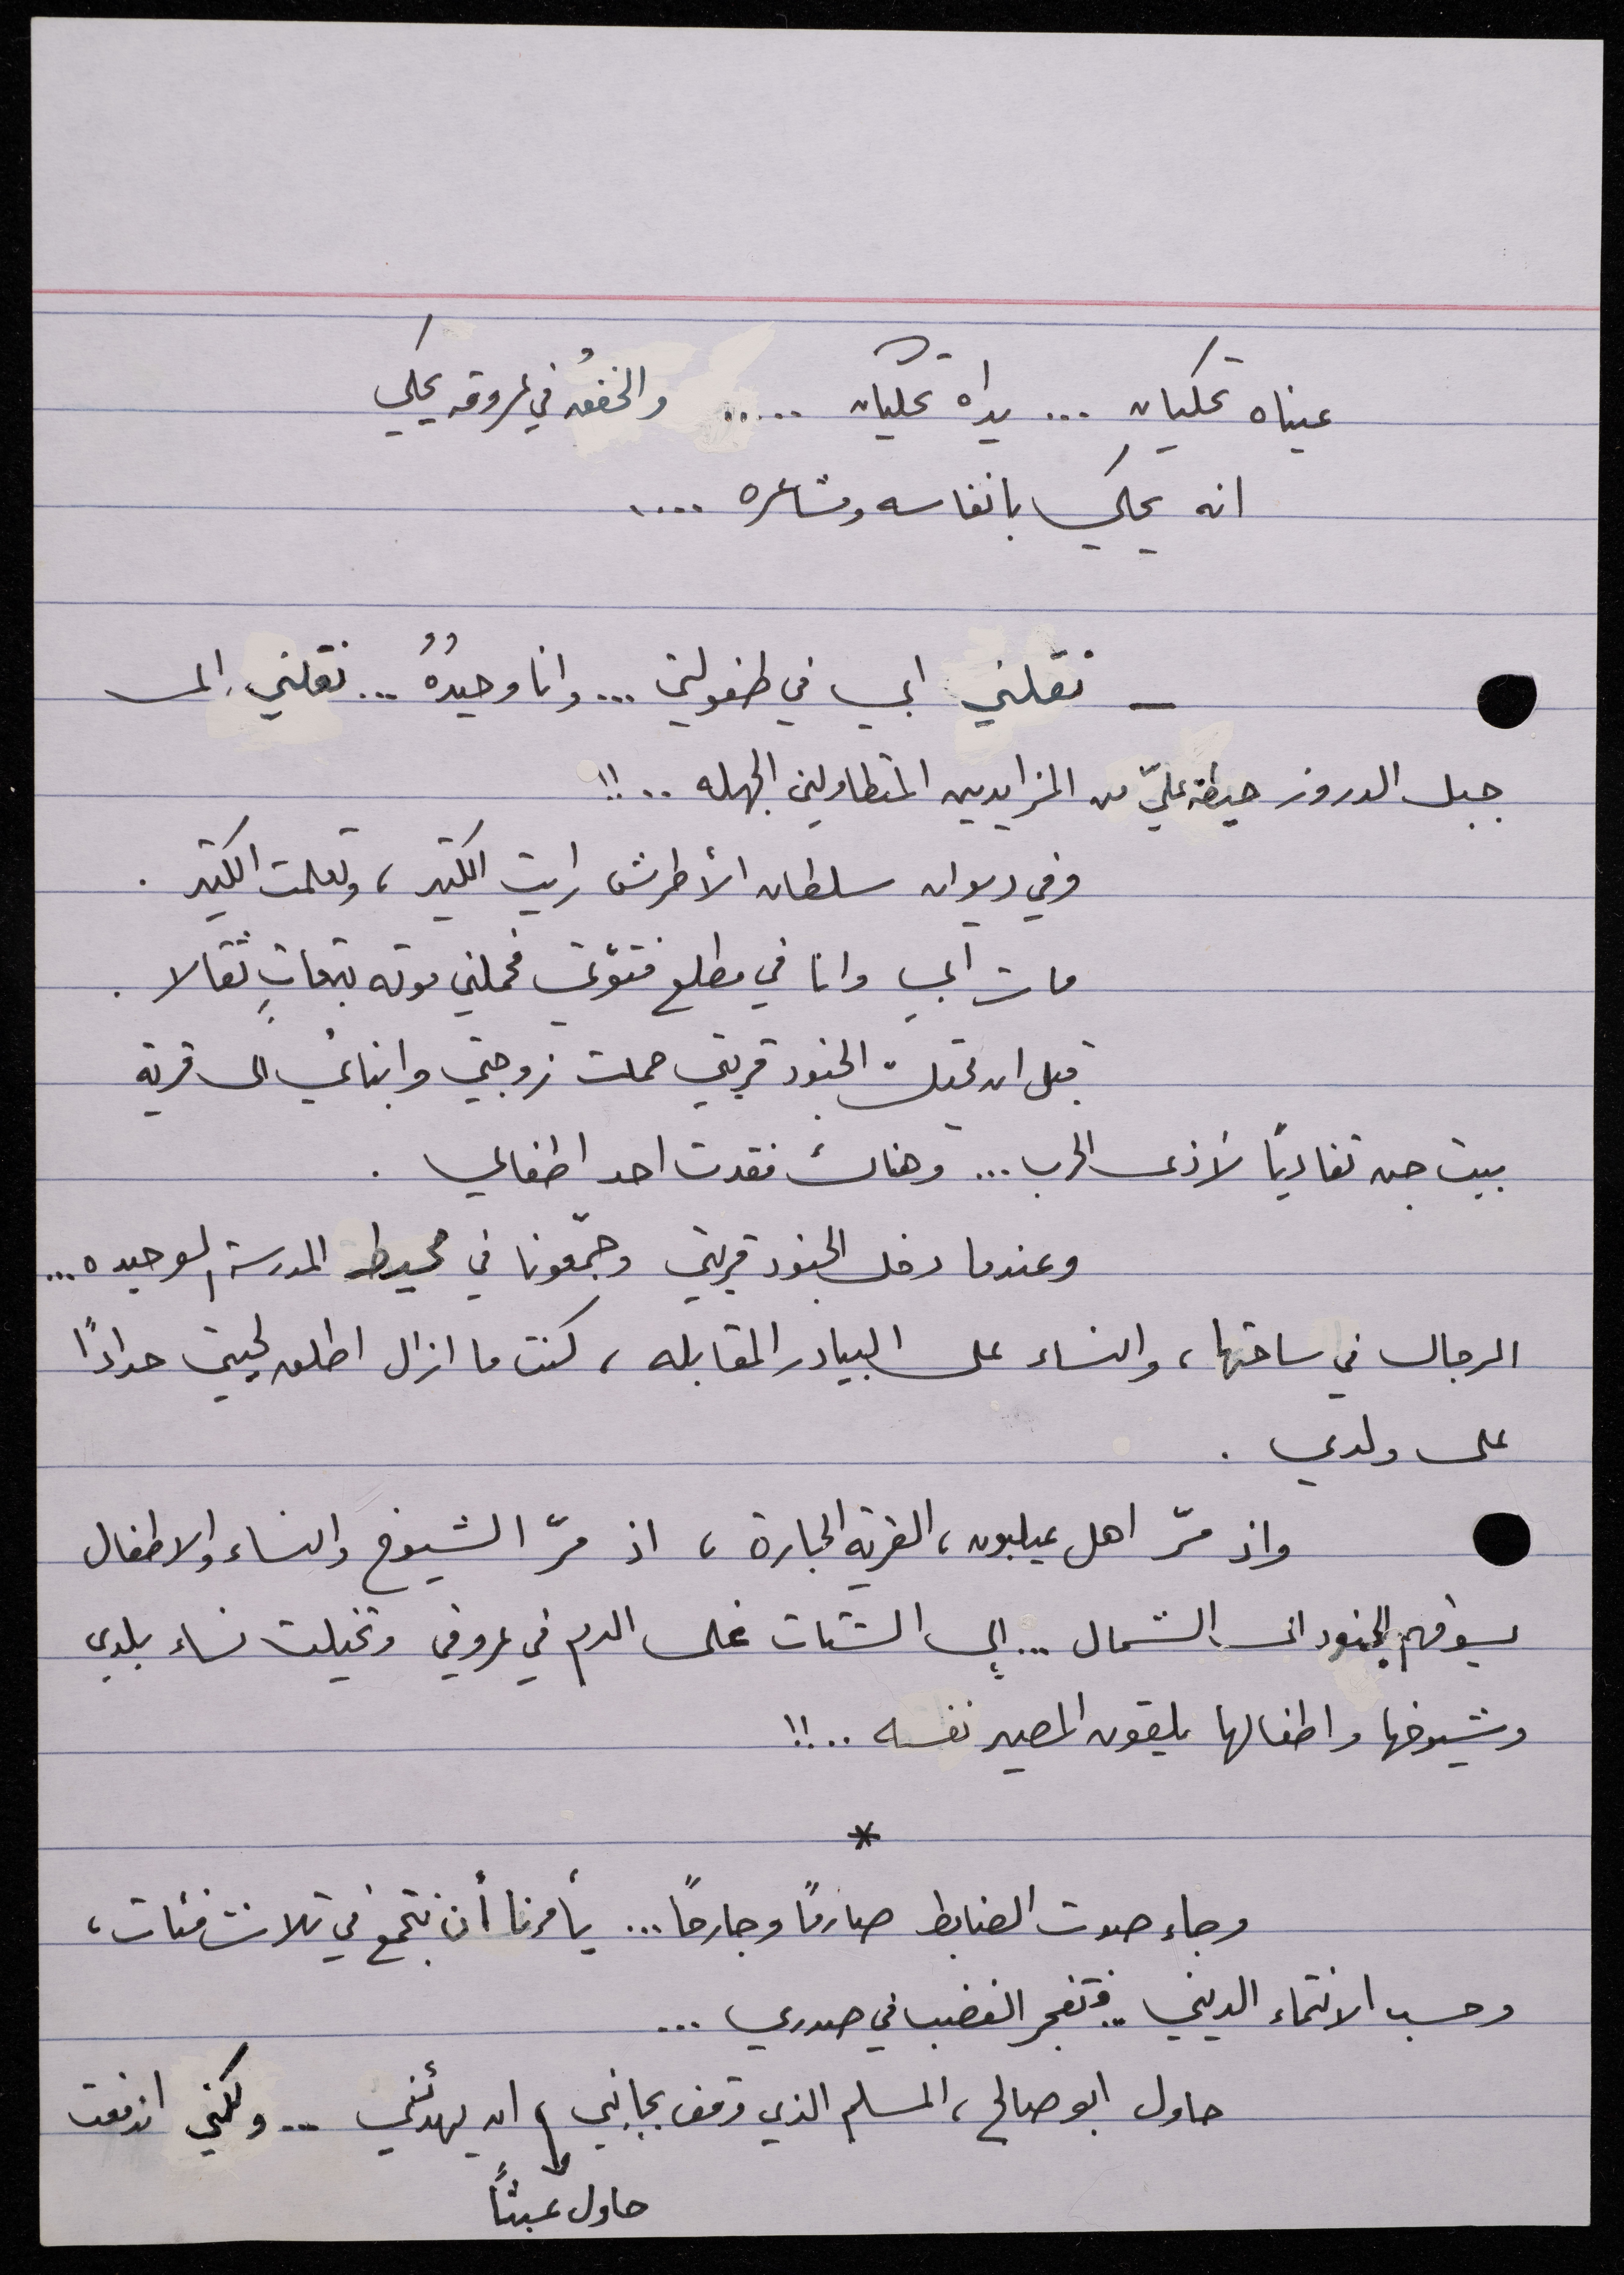 عيناه تحكيان ... يداه تحكيان ..... والخفقُ في عروقه يحكي
انه يحكي بانفاسه ومشاعره ....
_ نقلني ابي في طفولتي ... وانا وحيدُهُ ... نقلني إلى
جبل الدروز حيطة عليّ من المزايدين المتطاولين الجهله ..!!
وفي ديوان سلطان الأطرش رايت الكثير ، وتعلمت الكثير .
مات ابي وانا في مطلع فتوّتي فحملني موته تبعاتٍ ثقالا .
قبل ان تحتل الجنود قريتي حملت زوجتي وابنائي الى قرية
بيت جن تفاديًا لأذى الحرب ... وهناك فقدت احد اطفالي .
وعندما دخل الجنود قريتي وجمّعونا في محيط المدرسة الوحيده ...
الرجال في ساحتها ، والنساء على البيادر المقابله ، كنت ما ازال اطلق لحيتي حدادًا
على ولدي .
واذ مرّ اهل عيلبون ، القرية الجارة ، اذ مرّ الشيوخ والنساء والاطفال
يسوقهم الجنود الى الشمال ... إلى الشتات غلى الدم في عروقي وتخيلت نساء بلدي
وشيوخها واطفالها يلقون المصير نفسه ..!!
*
وجاء صوت الضابط صارمًا وجارحًا ... يأمرنا أن نتجمع في ثلاث فئات ،
وحسب الانتماء الديني .. فتفجر الغضب في صدري ...
حاول ابو صالح ، المسلم الذي وقف بجانبي ، ان يهدئني ... ولكني اندفعت
حاول عبثًا